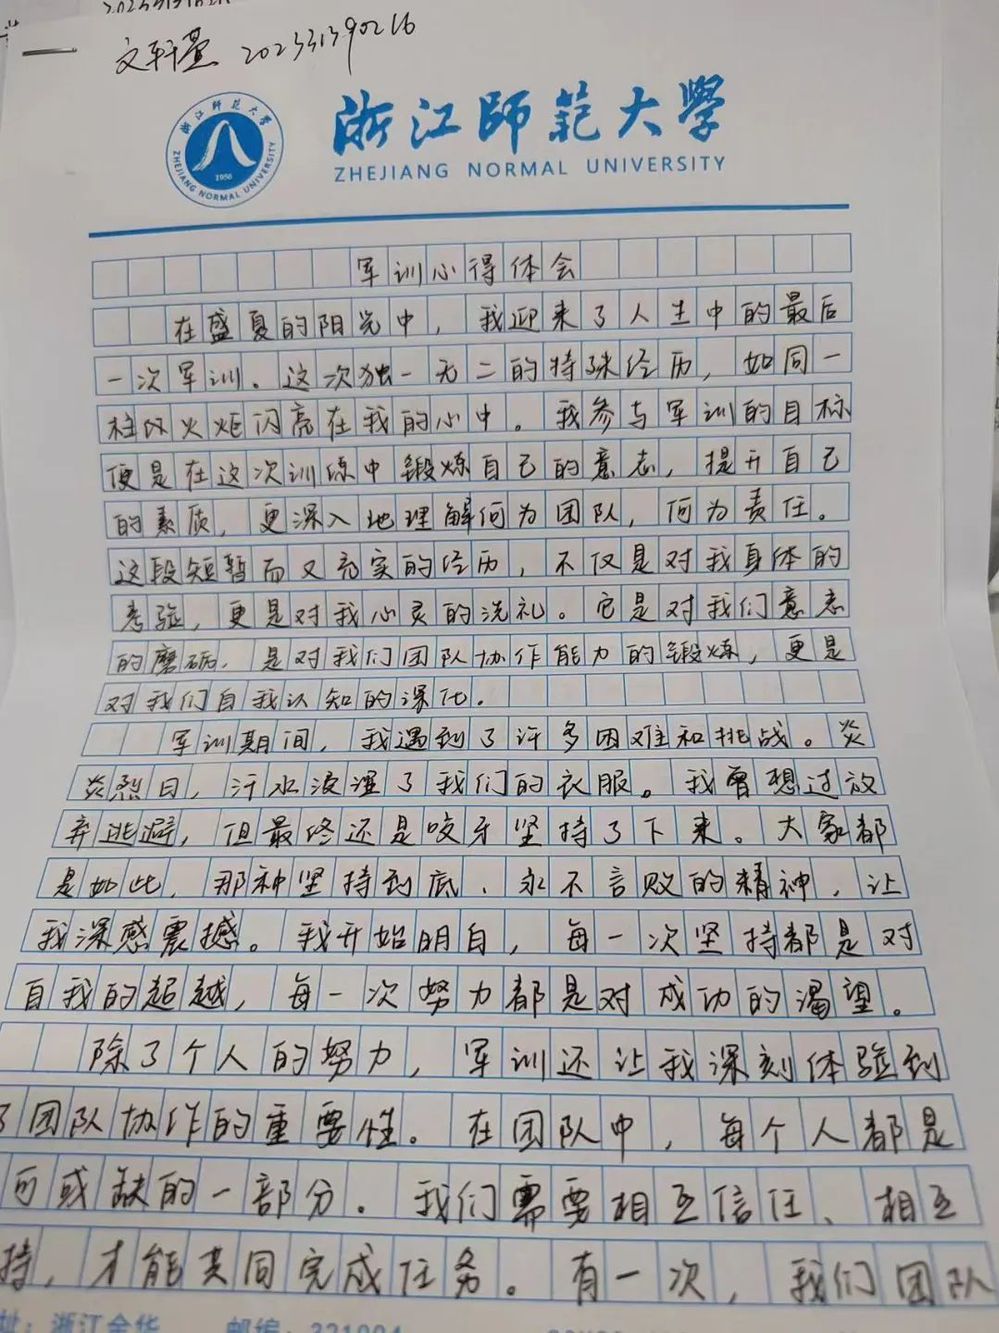 文轩萱 202331390216
浙江师范大学
浙江師范大學
ZHEJIANG NORMAL UNIVERSITY
1956
ZHEJIANG NORMAL UNIVERSITY
军训心得体会
在盛夏的阳光中，我迎来了人生中的最后
一次军训。这次独一无二的特殊经历，如同一
柱的火炬闪亮在我的心中。我参与军训的目标
便是在这次训练中锻炼自己的意志，提升自己
的素质，更深入地理解何为团队，何为责任。
这段短暂而又充实的经历，不仅是对我身体的
考验，更是对我心灵的洗礼。它是对我们意志
的磨砺，是对我们团队协作能力的锻炼，更是
对我们自我认知的深化。
军训期间，我遇到了许多困难和挑战。炎
炎烈日，汗水浸湿了我们的衣服。我曾想过放
弃逃避，但最终还是咬牙坚持了下来。大家都
是如此，那种坚持到底、永不言败的精神，让
我深感震撼。我开始明白，每一次坚持都是对
自我的超越，每一次努力都是对成功的渴望。
除了个人的努力，军训还让我深刻体验到
了团队协作的重要性。在团队中，每个人都是
可或缺的一部分。我们需要相互信任、相互
持，才能共同完成任务。有一次，我们团队
址：浙江金华 邮编：321004